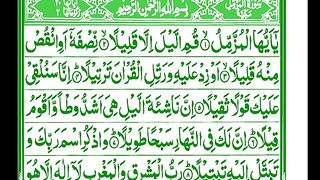 بِسْمِ اللهِ الرَّحْمٰنِ الرَّحِيْمِ
يٰۤاَيُّهَا الْمُزَّمِّلُ قُمِ الَّيْلَ اِلَّا قَلِيْلًا نِّصْفَهٗۤ اَوِ انْقُصْ
مِنْهُ قَلِيْلًا اَوْ زِدْ عَلَيْهِ وَرَتِّلِ الْقُرْاٰنَ تَرْتِيْلًا اِنَّا سَنُلْقِيْ
عَلَيْكَ قَوْلًا ثَقِيْلًا اِنَّ نَاشِئَةَ الَّيْلِ هِيَ اَشَدُّ وَطْاً وَّاَقْوَمُ
قِيْلًا اِنَّ لَكَ فِي النَّهَارِ سَبْحًا طَوِيْلًا وَاذْكُرِ اسْمَ رَبِّكَ وَ
تَبَتَّلْ اِلَيْهِ تَبْتِيْلًا رَبُّ الْمَشْرِقِ وَالْمَغْرِبِ لَاۤ اِلٰهَ اِلَّا هُوَ